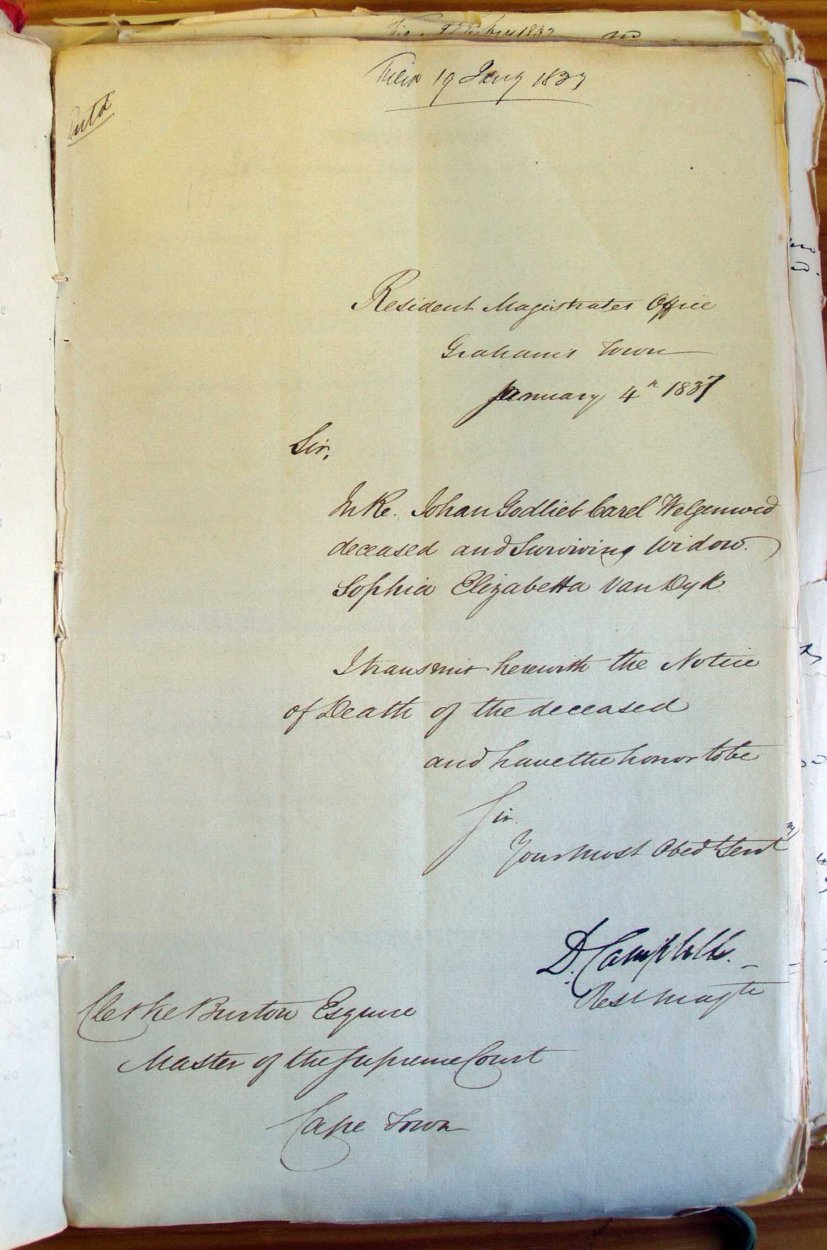 19 Jany 1837
Resident Magistrates Office
Graham's Town
January 4th 1837
Sir,
In Re. Johan Godlieb Carel Welgemoed
deceased and Surviving Widow
Sophia Elizabetta Van Dyk
I transmit herewith the Notice
of Death of the deceased
and have the honor to be
Sir
Your most Obedt Servt
D. Campbell
Rest Magte
Clerke Burton Esquire
Master of the Supreme Court
Cape Town